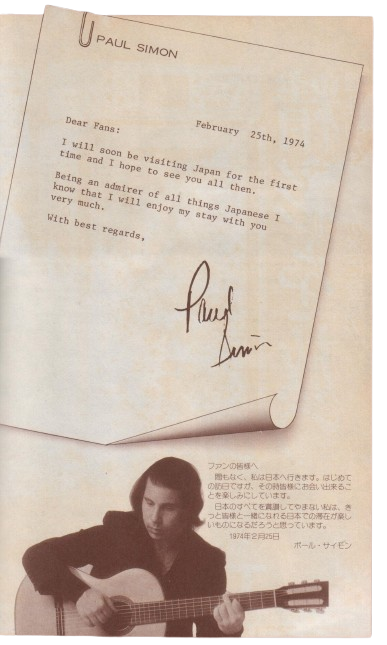 PAUL SIMON
February 25th, 1974
Dear Fans:
I will soon be visiting Japan for the first
time and I hope to see you all then.
Being an admirer of all things Japanese I
know that I will enjoy my stay with you
very much.
With best regards,
Paul
Simon
ファンの皆様へ
間もなく、私は日本へ行きます。はじめて
の訪日ですが、その時皆様にお会い出来るこ
とを楽しみにしています。
日本のすべてを賞讃してやまない私は、き
っと皆様と一緒になれる日本での滞在が楽し
いものになるだろうと思っています。
1974年2月25日
ポール・サイモン